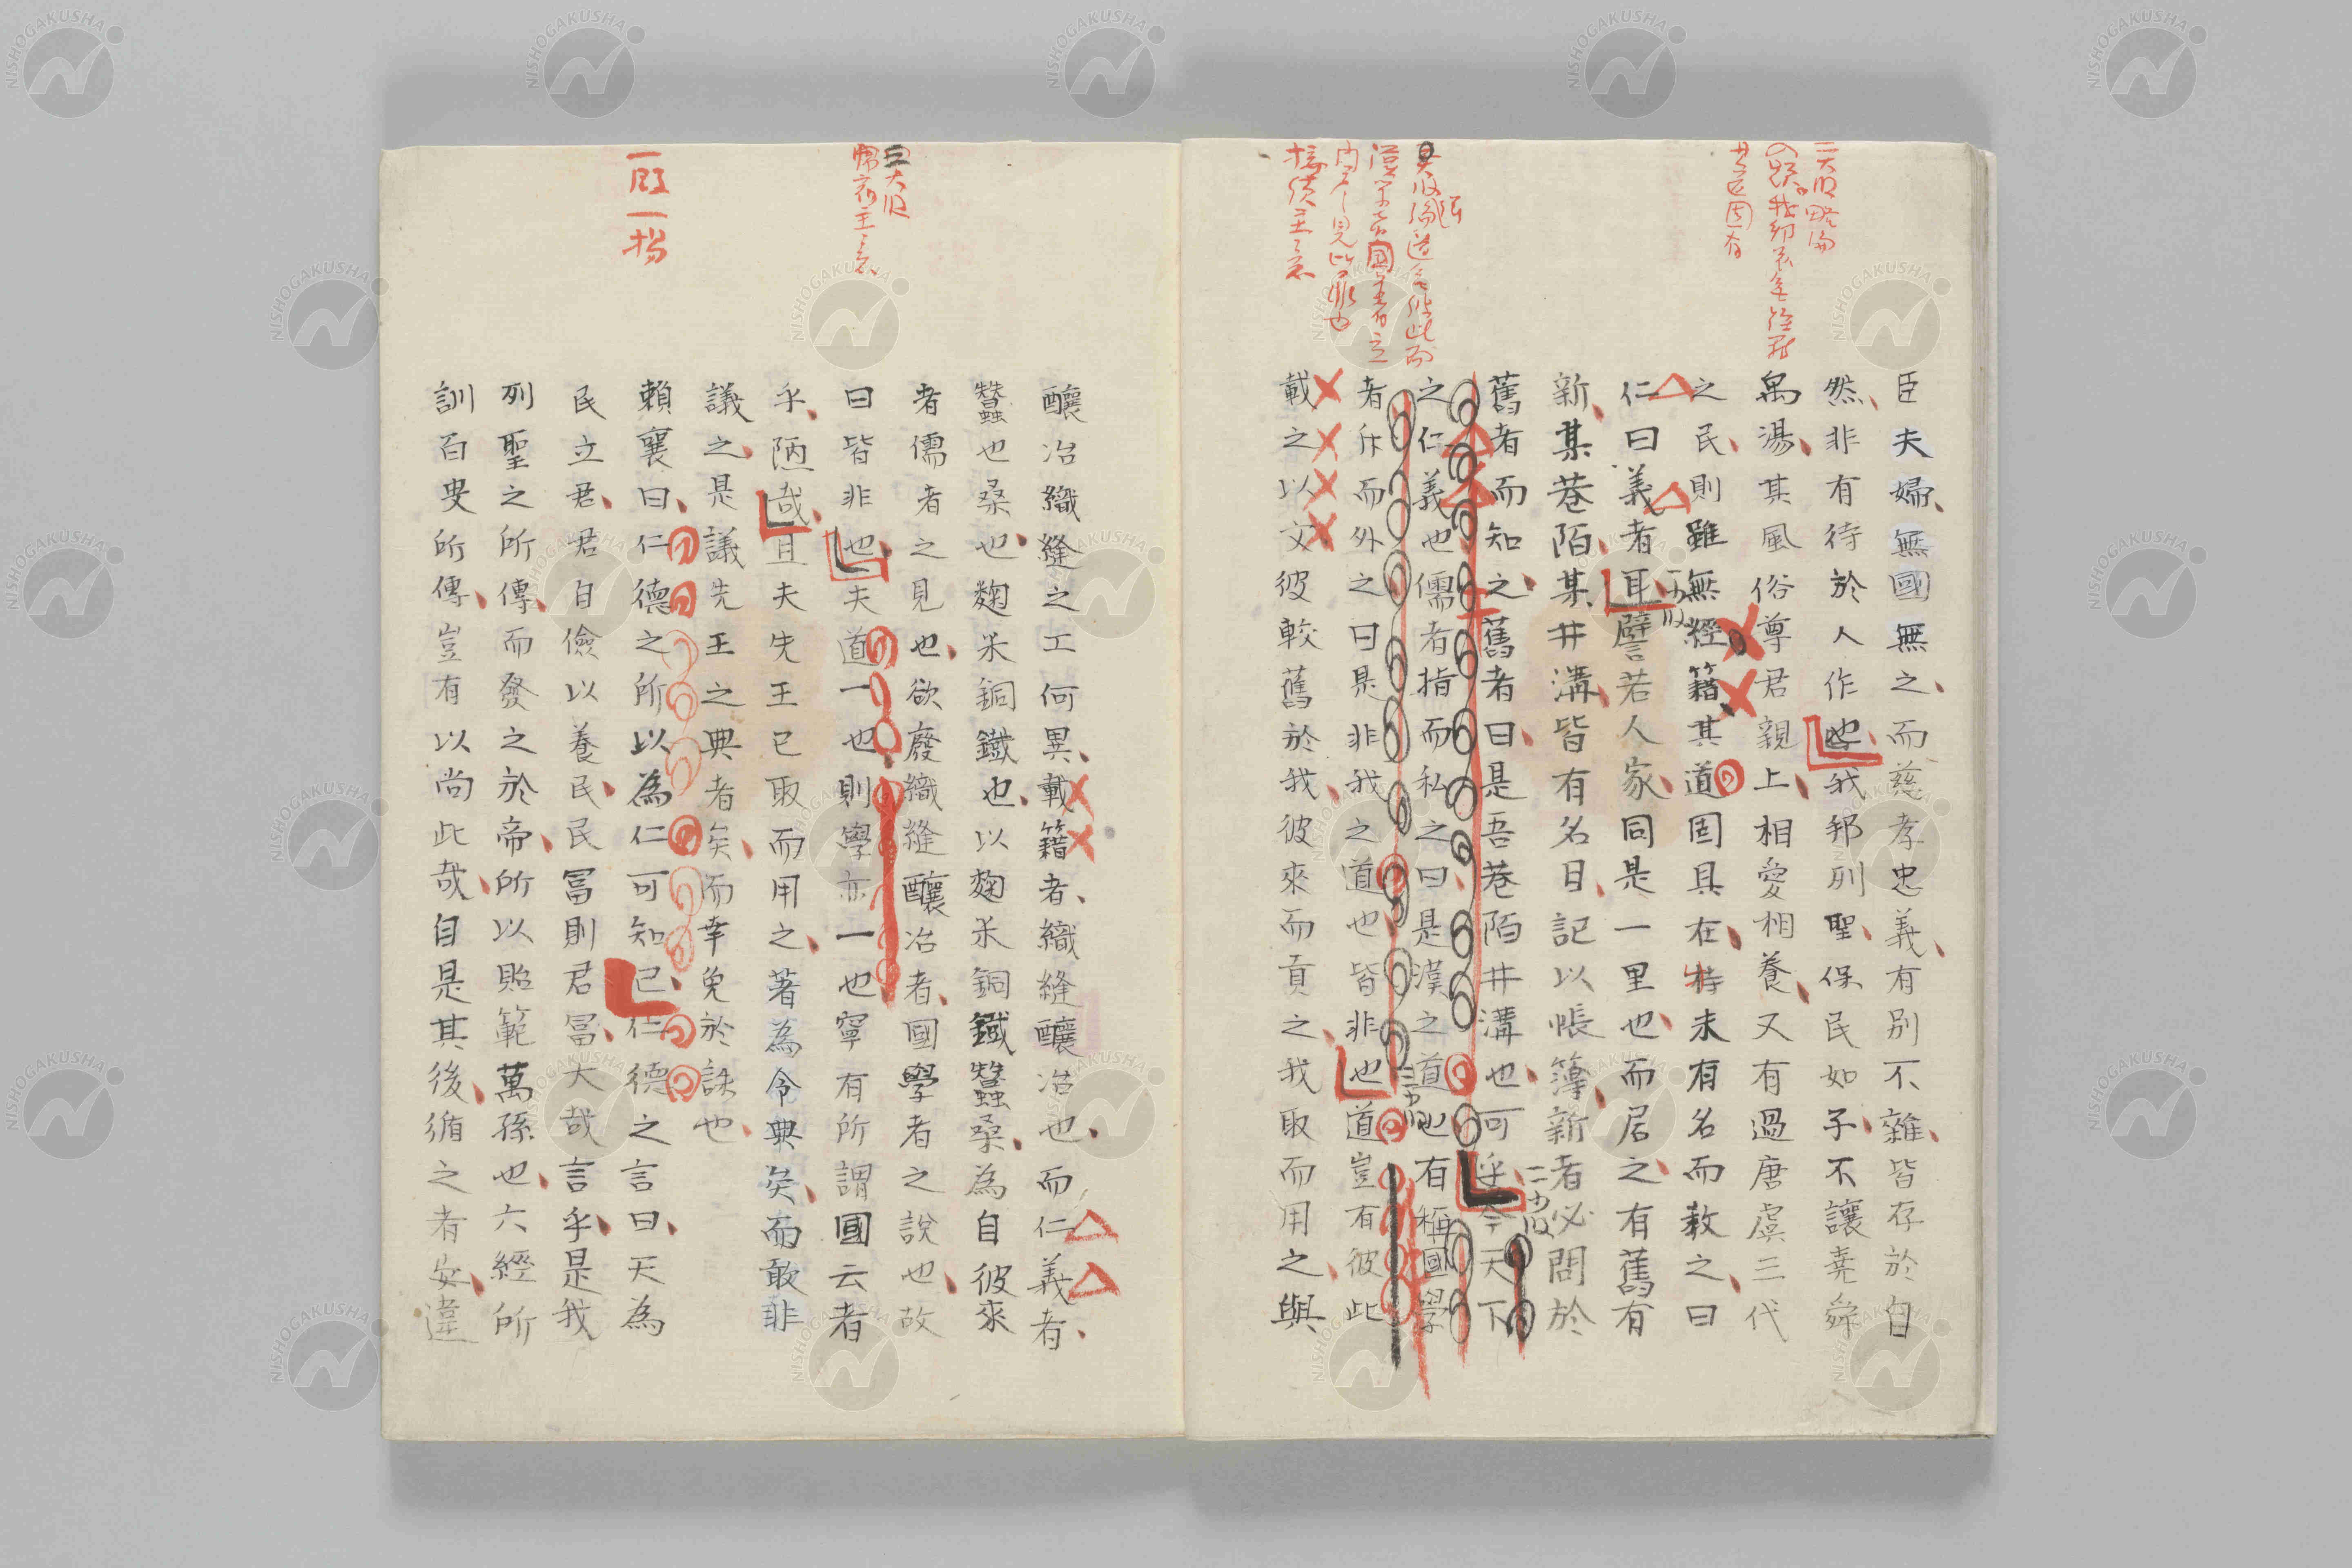 臣夫婦無國無之而慈孝忠義有別不雜皆存於自
然非有待於人作也我邦列聖保民如子不讓堯舜
禹湯其風俗尊君親上相愛相養又有過唐虞三代
之民則雖無經籍其道固具在特未有名而教之曰
仁曰義者耳譬若人家同是一里也而居之有舊有
新某巷陌某井溝皆有名目記以帳簿新者必問於
舊者而知之舊者曰是吾巷陌井溝也可乎今天下
之仁義也儒者指而私之曰是漢之道也有稱國學
者斥而外之曰是非我之道也皆非也道豈有彼此
載之以文彼較舊於我彼來而貢之我取而用之與
釀冶織縫之工何異載籍者織縫釀冶也而仁義者
蠶也桑也麹米銅鐵也以麹米銅鐵蠶桑為自彼來
者儒者之見也欲廢織縫釀冶者國學者之說也故
曰皆非也夫道一也則學亦一也寧有所謂國云者
乎陋哉且夫先王已取而用之著為令典矣而敢非
議之是議先王之典者矣而幸免於誅也
賴襄曰仁德之所以為仁可知已仁德之言曰天為
民立君君自儉以養民民冨則君冨大哉言乎是我
列聖之所傳而發之於帝所以貽範萬孫也六經所
訓百吏所傳豈有以尚此哉自是其後循之者安違
三大段
一頓一揚
NISHOGAKUSHA